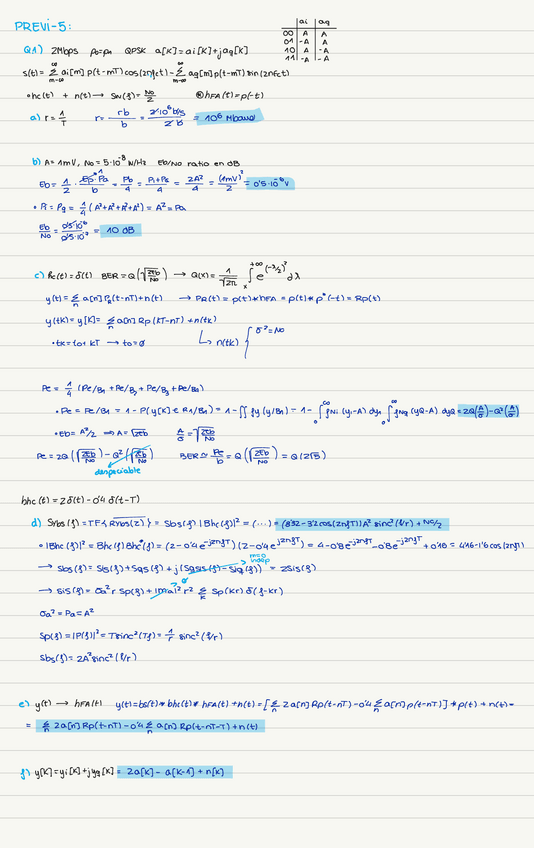 PREVI-5:
ai aq
00 A A
01 -A A
10 A -A
11 -A -A
Q1) 2Mbps po=p1 QPSK a[K]=ai[K]+jaq[K]
s(t)= ∞Σm=-∞ ai[m] p(t-mT) cos(2πfct) - ∞Σm=-∞ aq[m] p(t-mT) sin(2πfct)
• hc(t) + n(t) → Sn(f)= No/2 hFA(t)=p(-t)
a) r= 1/T r= rb/b = 2·10⁶ b/s / 2 b = 10⁶ Mbaud
b) A=1mV, No=5·10⁻⁸ W/Hz Eb/No ratio en dB
Eb= 1/2 · Ep·Pa/b = Pb/4 = Pi+Pq/4 = 2A²/4 = (1mV)²/2 = 0'5·10⁻⁶V
• Pi=Pq= 1/4 (A²+A²+A²+A²) = A² = Pa
Eb/No = 0'5·10⁻⁶/0'5·10⁻⁷ = 10 dB
c) hc(t)=δ(t) BER=Q(√2Eb/No) → Q(x)= 1/√2π ∫x+∞ e^(-λ/2)² dλ
y(t)= Σn a[n] Pa(t-nT)+n(t) → PR(t)=p(t)*hFA = p(t)*p*(-t) = Rp(t)
y(tK)= y[K]= Σn a[n] Rp(KT-nT) + n(tk)
• tK=to+KT → to=0 n(tk) { σ²=No
Pe= 1/4 (Pe/B1+Pe/B2+Pe/B3+Pe/B0)
• Pe=Pe/B1=1-P(y[K]∈R1/B1)=1-∫∫fy(y/B1)=1-∫0∞ fNi(yi-A) dyi ∫0∞ fNq(yQ-A) dyQ = 2Q(A/σ)-Q²(A/σ)
• Eb=A²/2 ⇒ A=√2Eb A/σ=√2Eb/No
Pe=2Q(√2Eb/No)-Q²(√2Eb/No) BER≃ Pe/b = Q(√2Eb/No) = Q(2√5)
despeciable
bhc(t)=2δ(t)-0'4 δ(t-T)
d) Sybs(f)=TF{Rybs(z)} = Sbs(f)|Bhc(f)|² = (...) = (8'32-3'2cos(2πfT))A² sinc²(f/r)+No/2
• |Bhc(f)|²=Bhc(f)Bhc*(f)=(2-0'4e^-j2πfT)(2-0'4e^j2πfT)=4-0'8e^j2πfT-0'8e^-j2πfT+0'16=4'16-1'6cos(2πfT)
→ Sbs(f)=Sis(f)+Sqs(f)+j(Sqsis(f)-Siq(f)) = 2Sis(f)
→ Sis(f)=σa² r Sp(f)+|ma|² r² Σk Sp(kr) δ(f-kr)
σa²=Pa=A²
Sp(f)=|P(f)|²=Tsinc²(Tf)= 1/r sinc²(f/r)
Sbs(f)=2A²sinc²(f/r)
e) y(t) → hFA(t) y(t)=bs(t)*bhc(t)*hFA(t)+n(t)=[Σn 2a[n] Rp(t-nT)-0'4Σn a[n]p(t-nT)]*p(t)+n(t)=
= Σn 2a[n] Rp(t-nT)-0'4Σn a[n] Rp(t-nT-T)+n(t)
f) y[K]=yi[K]+jyq[K]= 2a[K]-a[K-1]+n[K]